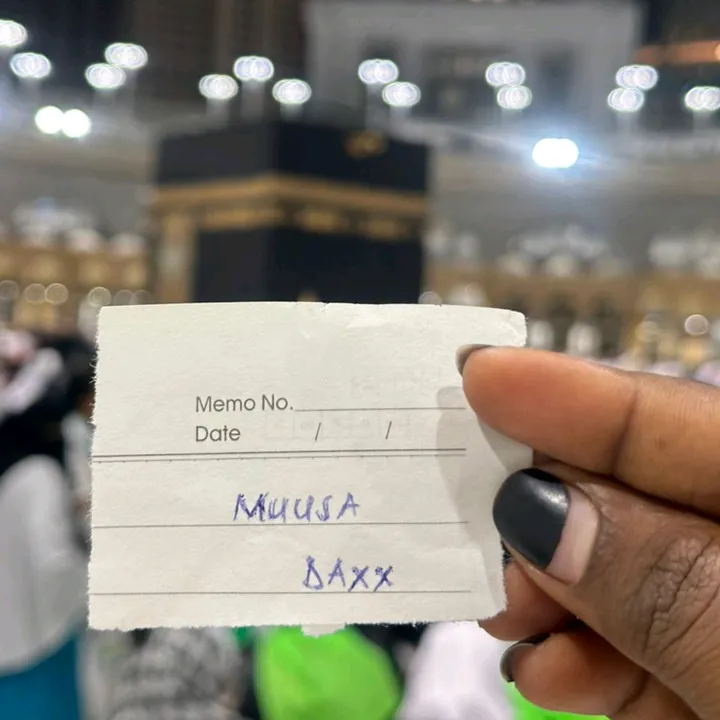 Memo No.
Date / /
MUUSA
DAXX